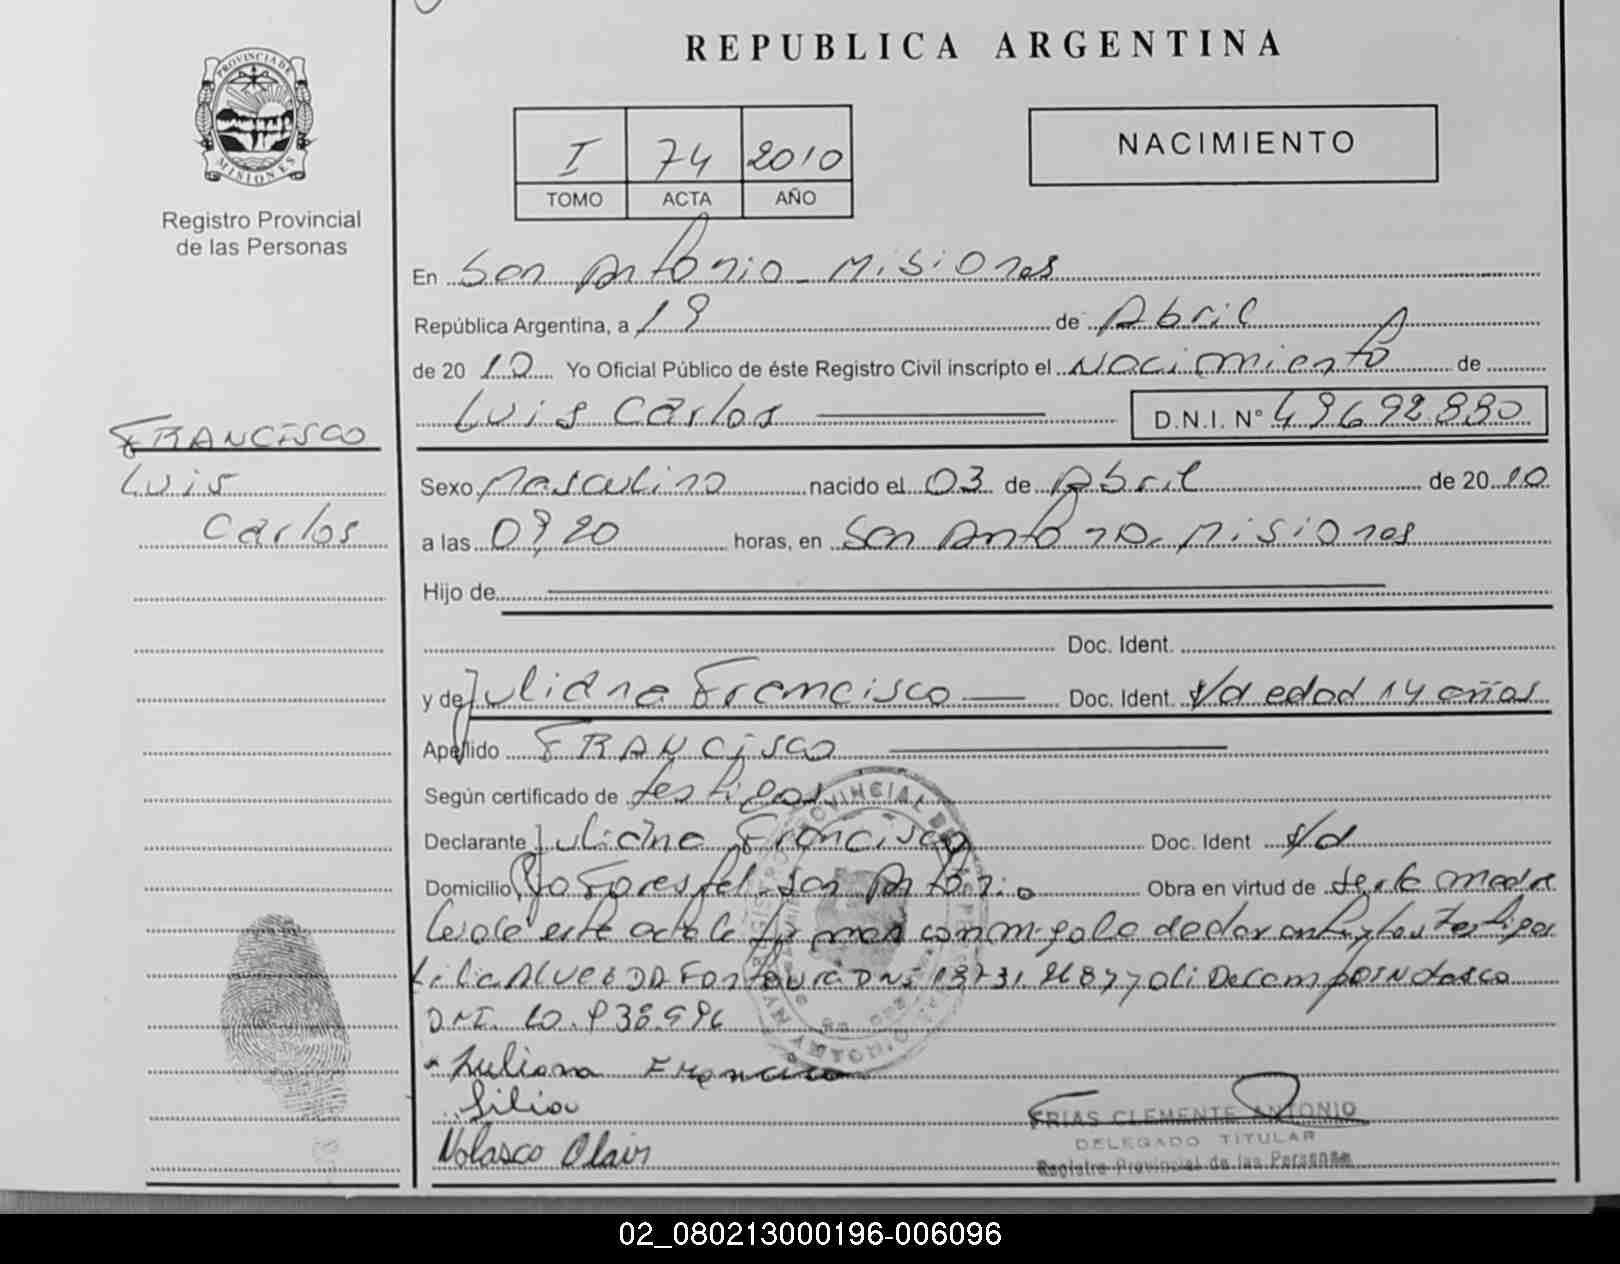 PROVINCIA DE
MISIONES
Registro Provincial
de las Personas
REPUBLICA ARGENTINA
I 74 2010
TOMO ACTA AÑO
NACIMIENTO
En San Antonio - Misiones
República Argentina, a 19 de Abril
de 2010 Yo Oficial Público de éste Registro Civil inscripto el Nacimiento de
Luis Carlos D.N.I. N° 49692.880
FRANCISCO
Luis
Carlos
Sexo Masculino nacido el 03 de Abril de 2010
a las 09,20 horas, en San Antonio. Misiones
Hijo de
Doc. Ident.
y de Juliana Francisco Doc. Ident. s/d edad 14 años
Apellido FRANCISCO
Según certificado de testigos
Declarante Juliana Francisco Doc. Ident s/d
Domicilio San Antonio Obra en virtud de ser la madre
Leída este acta la firman conmigo la declarante y los testigos
DNI y
DNI.
Juliana Francisco
Lilia
Nolasco Olair
FRIAS CLEMENTE ANTONIO
DELEGADO TITULAR
Registro Provincial de las Personas
02_080213000196-006096